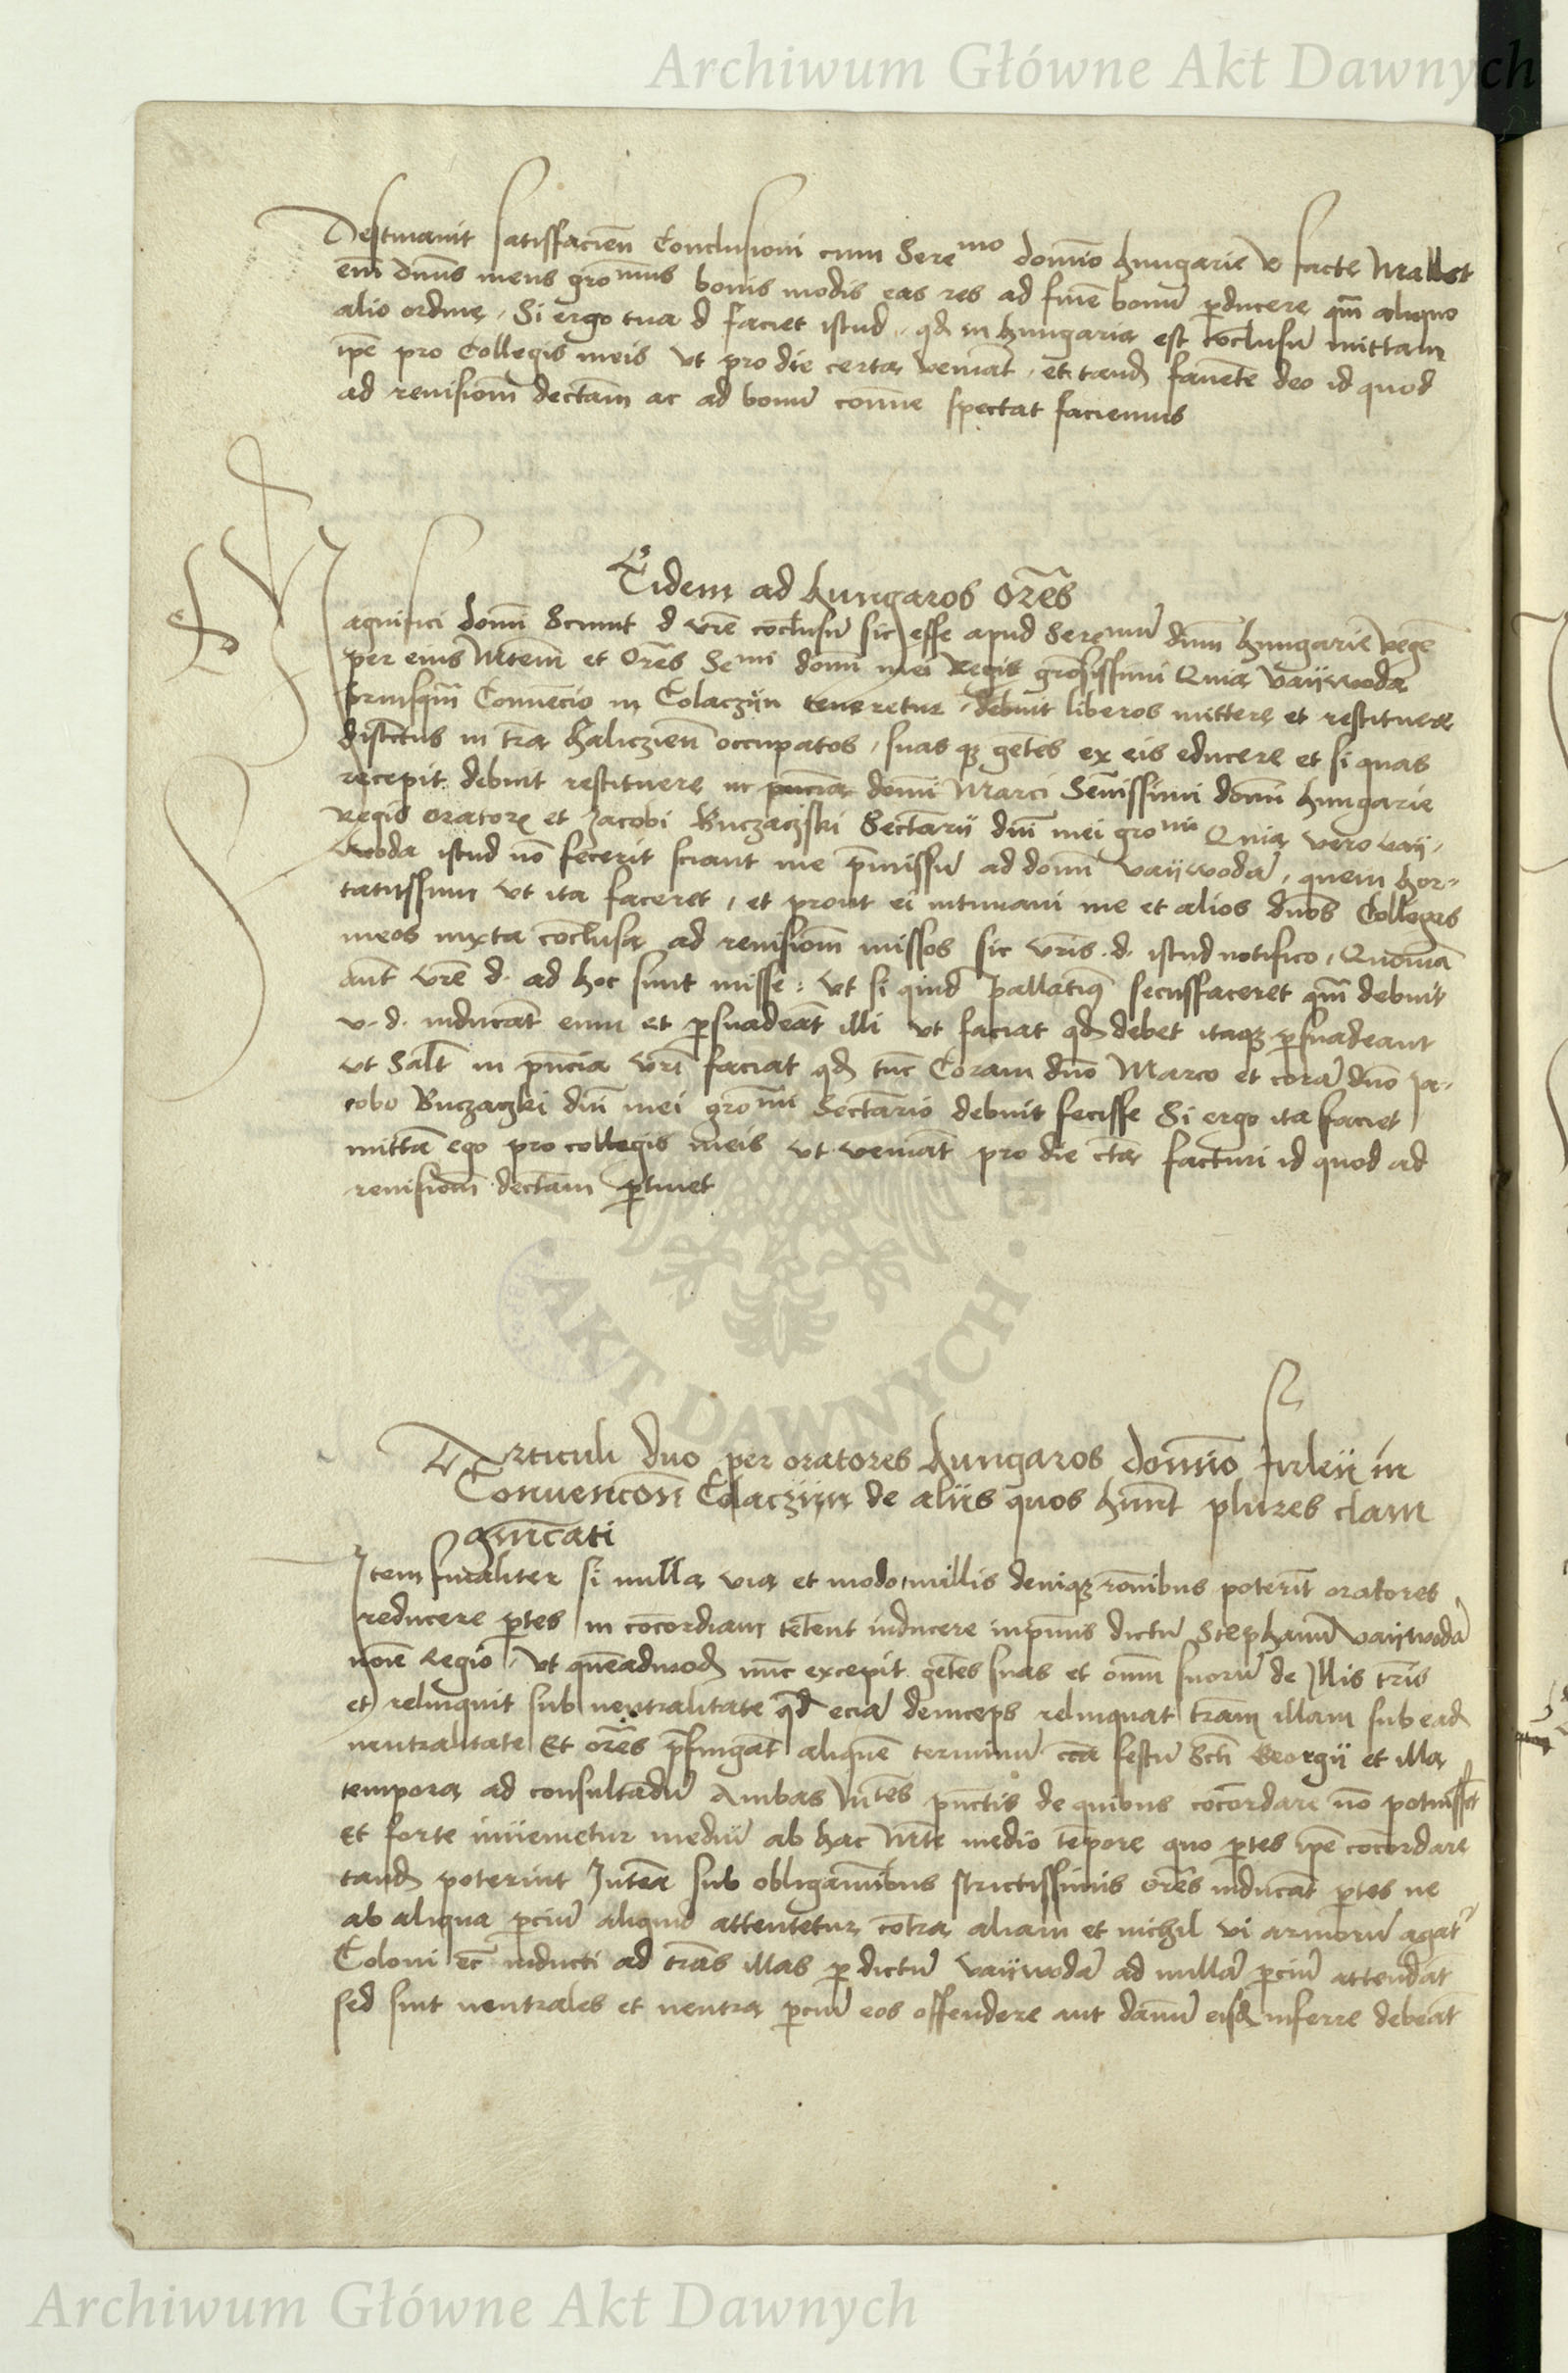 Archiwum Główne Akt Dawnych
Destinavit satisfacien̄ Conclusioni cum Seremo domīo hungarie facte Mallet
em̄ dn̄us meus gromus bonis modis eas res ad finē bonū perducere qm̄ aliquo
alio ordine, Si ergo tua d faciet istud, qd in hungaria est cōclusū mittam
ip̄e pro Collegis meis ut pro die certa veniāt, et tand favētē deo id quod
ad revisiom̄ dectam̄ ac ad bonū com̄ue spectat faciemus
Eidem ad hungaros Or̄es
Magnifici domī Sciunt d vr̄e cōclusū sic esse apud Seremū dn̄m hungarie regē
per eius Mtem̄ et Or̄es Semi domī mei Regis grosissimi Quia vaÿwoda
priusqm̄ Convēcio in Colaczÿn teneretur, debuit liberos mittere et restituere
districtus in tr̄a haliczien̄ occupatos, suas qz gētes ex eis educere et si quas
recepit debuit restituere in pn̄cia domī Marci Sem̄issimi domī hungarie
Regis oratore et Jacobi Buczaczski Sectarii dn̄i mei gromi Quia vero vaÿ-
woda istud nō fecerit sciant me p̄missū ad domī vaÿwodā, quem hor-
tatussum ut ita faceret, et prout ei intimavi me et alios dn̄os Collegas
meos iuxta cōclusa ad revisiom̄ missos sic vr̄is d. istud notifico, Quoniā
aūt vr̄e d. ad hoc sunt misse: ut si quid pallatinus secusfaceret qm̄ debuit
v. d. inducāt eum et persuadeāt illi ut faciat qd debet itaqz persuadeant
ut Salt̄ in pn̄cia vr̄i faciat qd tūc Coram dn̄o Marco et corā dn̄o Ja-
cobo Buczaczki dn̄i mei gromi Sectario debuit fecisse Si ergo ita faciet
mittā ego pro collegis meis ut veniāt pro die cta facturi id quod ad
revisiom̄ dectam̄ ptinet
AKT DAWNYCH
Articuli duo per oratores hungaros domīo firleii in
Convencōn̄ Colaczÿn de aliis quos hūnt plures clam
Item finaliter si nulla via et modo, nullis deniqz rōnibus poterīt oratores
reducere ptes in cōcordiam tētent inducere inprimis dictū Stephanū vaÿwodā
noīe Regio, ut quēadmod nūc excepit gētes suas et om̄ suorū de illis tr̄is
et relinquit sub neutralitate qd eciā deinceps relinquat tr̄am illam sub ead
neutralitate Et or̄es p̄fingāt aliquē terminū c̄ca festū Scti Georgii et illa
tempora ad consultandū Ambas Mtes pūctis de quibus cōcordare nō potuissēt
Et forte invenietur mediū ab hac Mte medio tēpore quo ptes ip̄e cōcordare
tand poterint Intea sub obligaciōibus strictissimis or̄es inducāt ptes ne
ab aliqua pciū aliquid attentetur cōtra aliam et nichil vi armorū agatr
Coloni ec inducti ad tr̄as illas per dictū vaÿwodā ad nullā pciū attendāt
sed sint neutrales et neutra pciū eos offendere aut damnū eisd inferre debeāt
Archiwum Główne Akt Dawnych